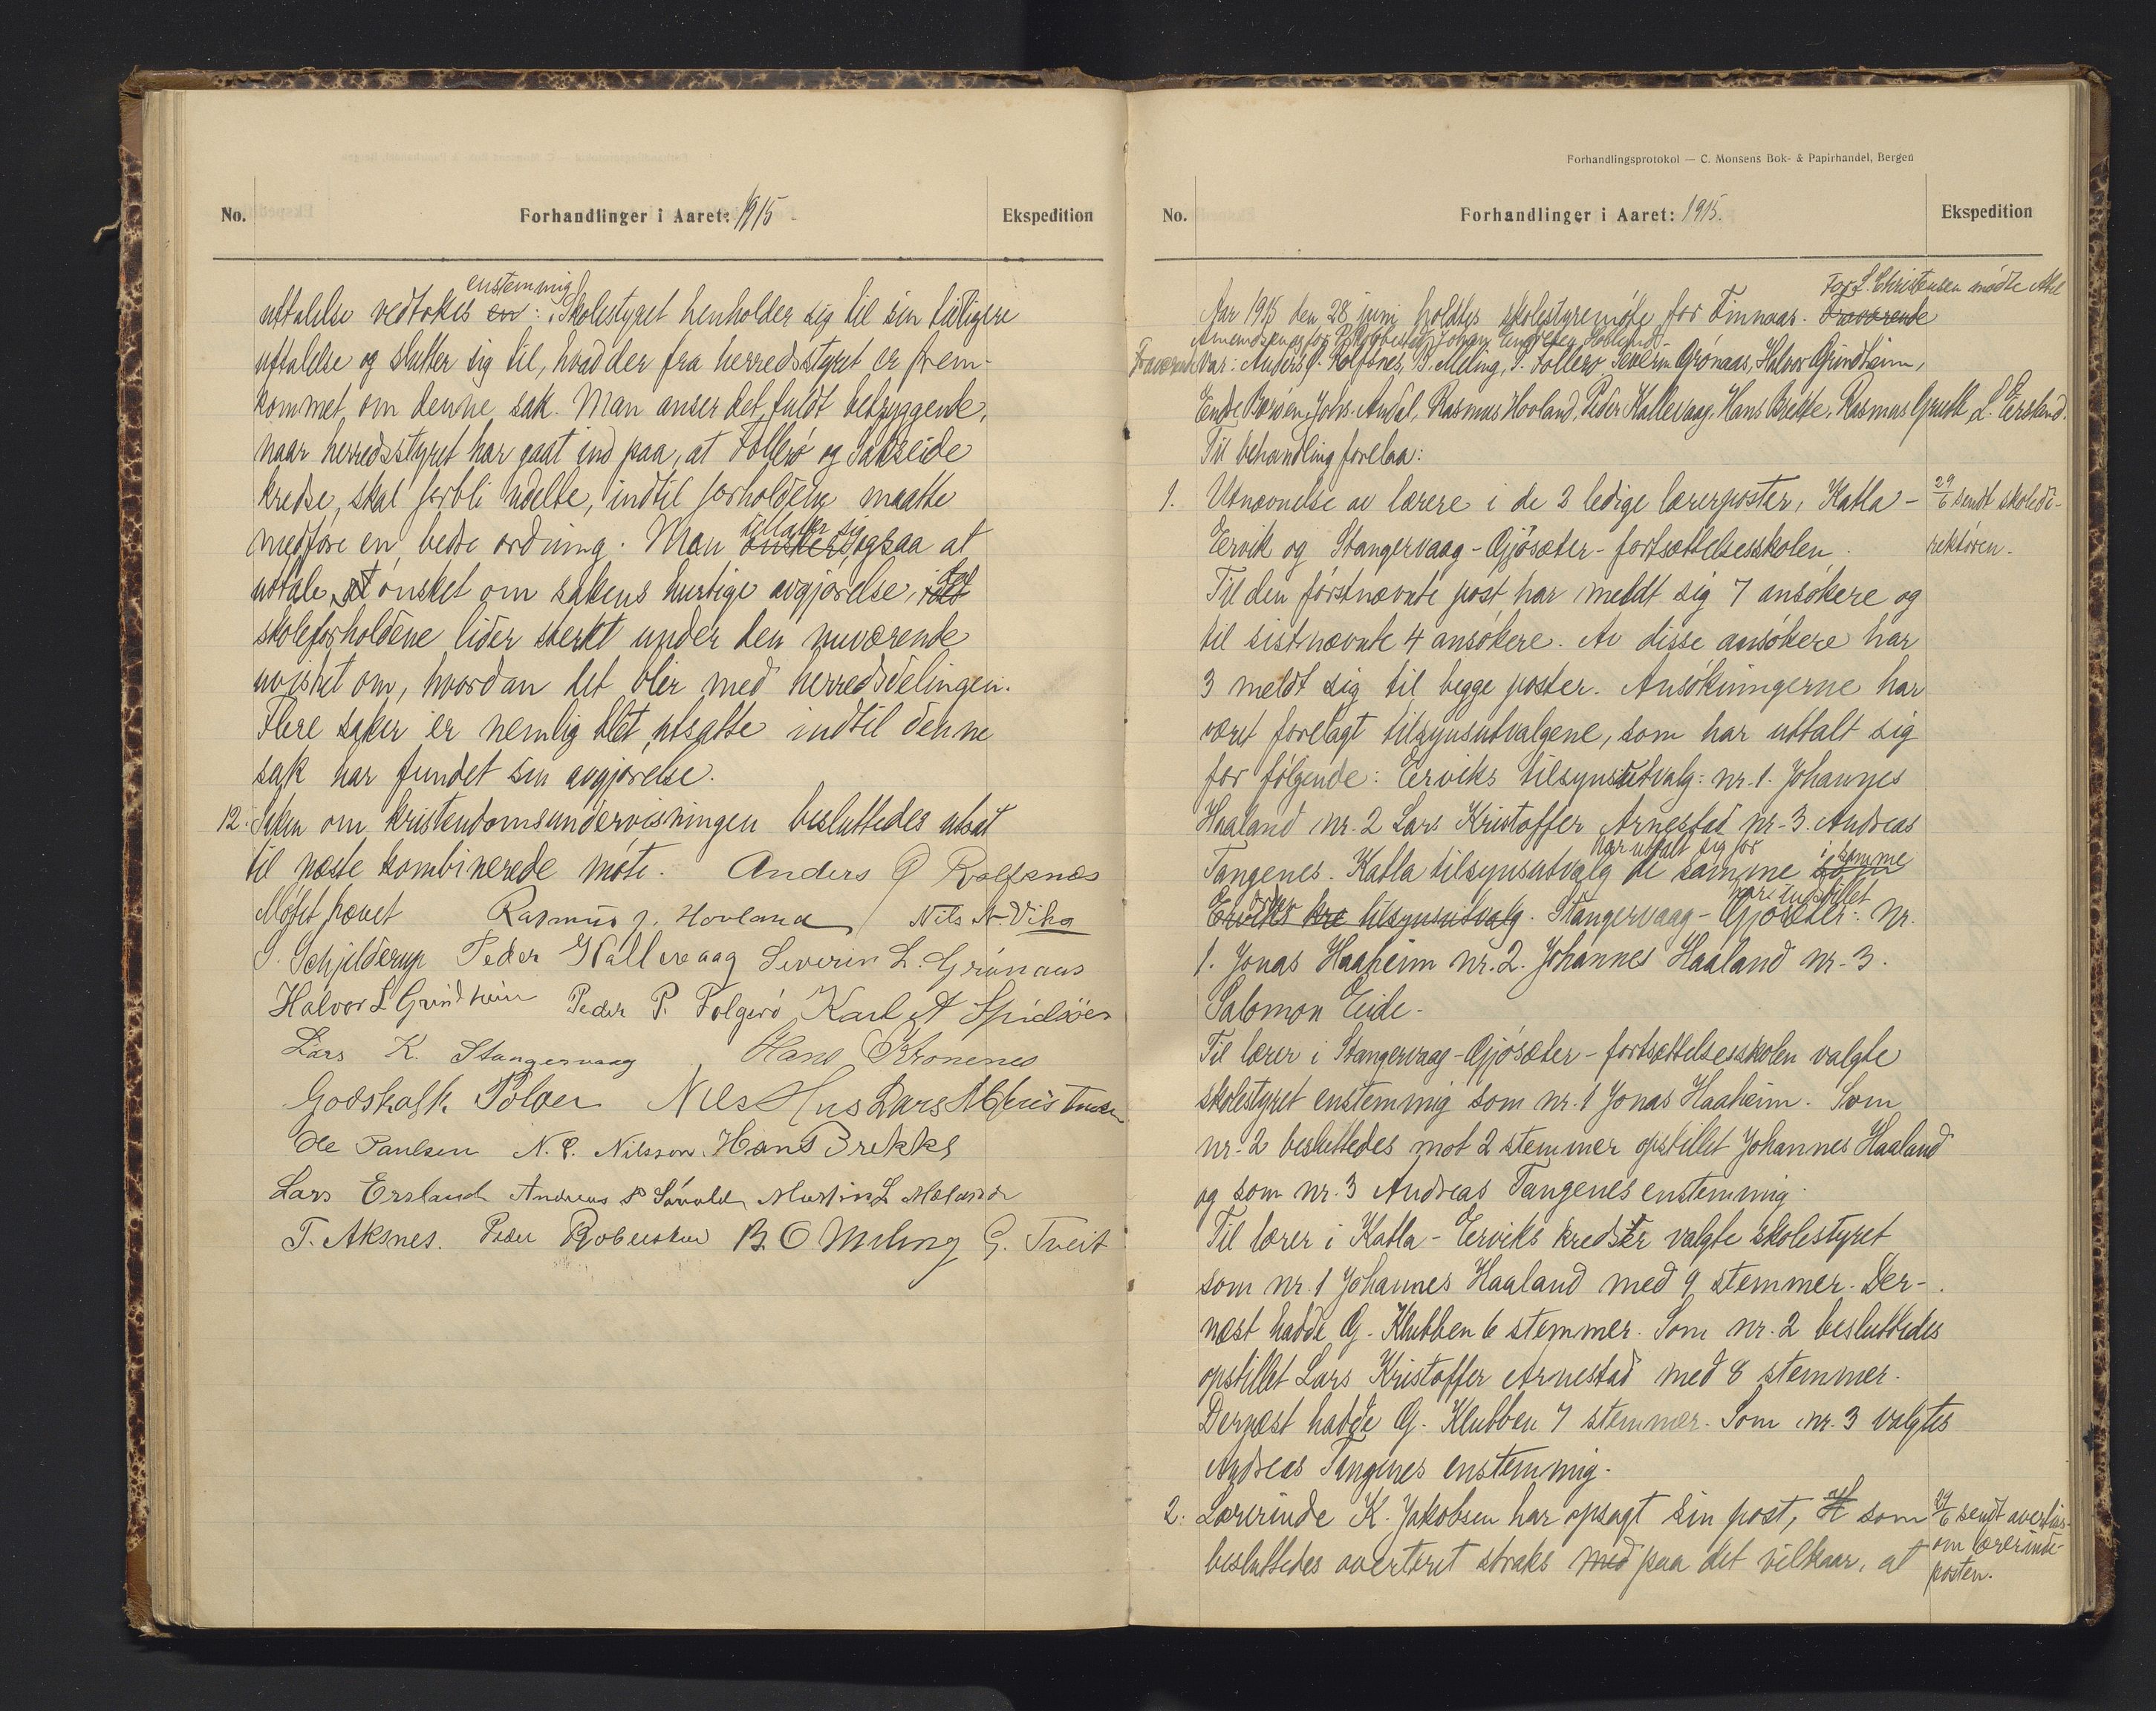 No. Forhandlinger i Aaret: 1915 Ekspedition
enstemmig
uttalelse vedtokes en: Skolestyret henholder sig til sin tidligere
uttalelse og slutter sig til, hvad der fra herredsstyret er frem-
kommet om denne sak. Man anser det fuldt betryggende,
naar herredsstyret har gaat ind paa, at Follerö og Sakseide
kredse, skal forbli udelte, indtil forholdene maatte
medföre en bedre ordning. Man önsker ogsaa at
tillater sig
uttale önsket om sakens hurtige avgjörelse, idet
skoleforholdene lider sterkt under den nuværende
uvishet om, hvordan det blir med herredsdelingen.
Flere saker er nemlig blet utsatte indtil denne
sak har fundet sin avgjörelse.
12. Saken om kristendomsundervisningen besluttedes utsat
til næste kombinerede möte. Anders Ø Rolfsnes
Mötet hævet Rasmus J. Hovland Nils N. Vika
S. Schjelderup Peder Hallevaag Severin L. Grönaas
Halvor L Grindheim Peder P. Folgerö Karl A Spidsöen
Lars K. Stangervaag Hans Kronenes
Godskalk Polden Nils Hus Lars M Christensen
Ole Paulsen N. E. Nilsson. Hans Brekke
Lars Ersland Andreas P Sövold Martin L Mæland
T. Aksnes. Peder Robberstad B. O Meling G. Tveit
Forhandlingsprotokol — C. Monsens Bok- & Papirhandel, Bergen
No. Forhandlinger i Aaret: 1915. Ekspedition
For L. Christensen mödte Abel
Aar 1915 den 28 juni holdtes skolestyremöte for Finnaas. Fraværende
Amundsen og for P. Robberstad Johan Engelsen Hovland
Fraværende var: Anders Ø. Rolfsnes, B. Meling, P. Follerö, Severin Grönaas, Halvor Grindheim,
Endre Børöen, Johs. Andal, Rasmus Hovland, Peder Hallevaag, Hans Brekke, Rasmus L. Ersland.
Til behandling forelaa:
1. Utnævnelse av lærere i de 2 ledige lærerposter, Katla-
29/6 sendt skoledi-
Eervik og Stangervaag-Gjösæter-fortsættelsesskolen.
rektören.
Til den förstnævnte post har meldt sig 7 ansökere og
til sistnævnte 4 ansökere. Av disse ansökere har
3 meldt sig til begge poster. Ansökningerne har
været forelagt tilsynsutvalgene, som har uttalt sig
for fölgende: Eerviks tilsynsutvalg: nr. 1. Johannes
Haaland nr. 2 Lars Kristoffer Arnestad nr. 3. Andreas
har uttalt sig for i samme
Tangenes. Katla tilsynsutvalg de samme som
orden har indstillet
Eerviks kre tilsynsutvalg. Stangervaag-Gjösæter: Nr.
1. Jonas Haaheim nr. 2. Johannes Haaland nr. 3.
Salomon Eide.
Til lærer i Stangervaag-Gjösæter-fortsættelsesskolen valgte
skolestyret enstemmig som nr. 1 Jonas Haaheim. Som
nr. 2 besluttedes mot 2 stemmer opstillet Johannes Haaland
og som nr. 3 Andreas Tangenes enstemmig.
Til lærer i Katla-Eerviks kredser valgte skolestyret
som nr. 1 Johannes Haaland med 9 stemmer. Der-
næst hadde G. Klubben 6 stemmer. Som nr. 2 besluttedes
opstillet Lars Kristoffer Arnestad med 8 stemmer.
Dernæst hadde G. Klubben 7 stemmer. Som nr. 3 valgtes
Andreas Tangenes enstemmig.
2. Lærerinde K. Jakobsen har opsagt sin post, H som
29/6 sendt avertis-
besluttedes avertert straks med paa det vilkaar, at
om lærerinde-
posten.